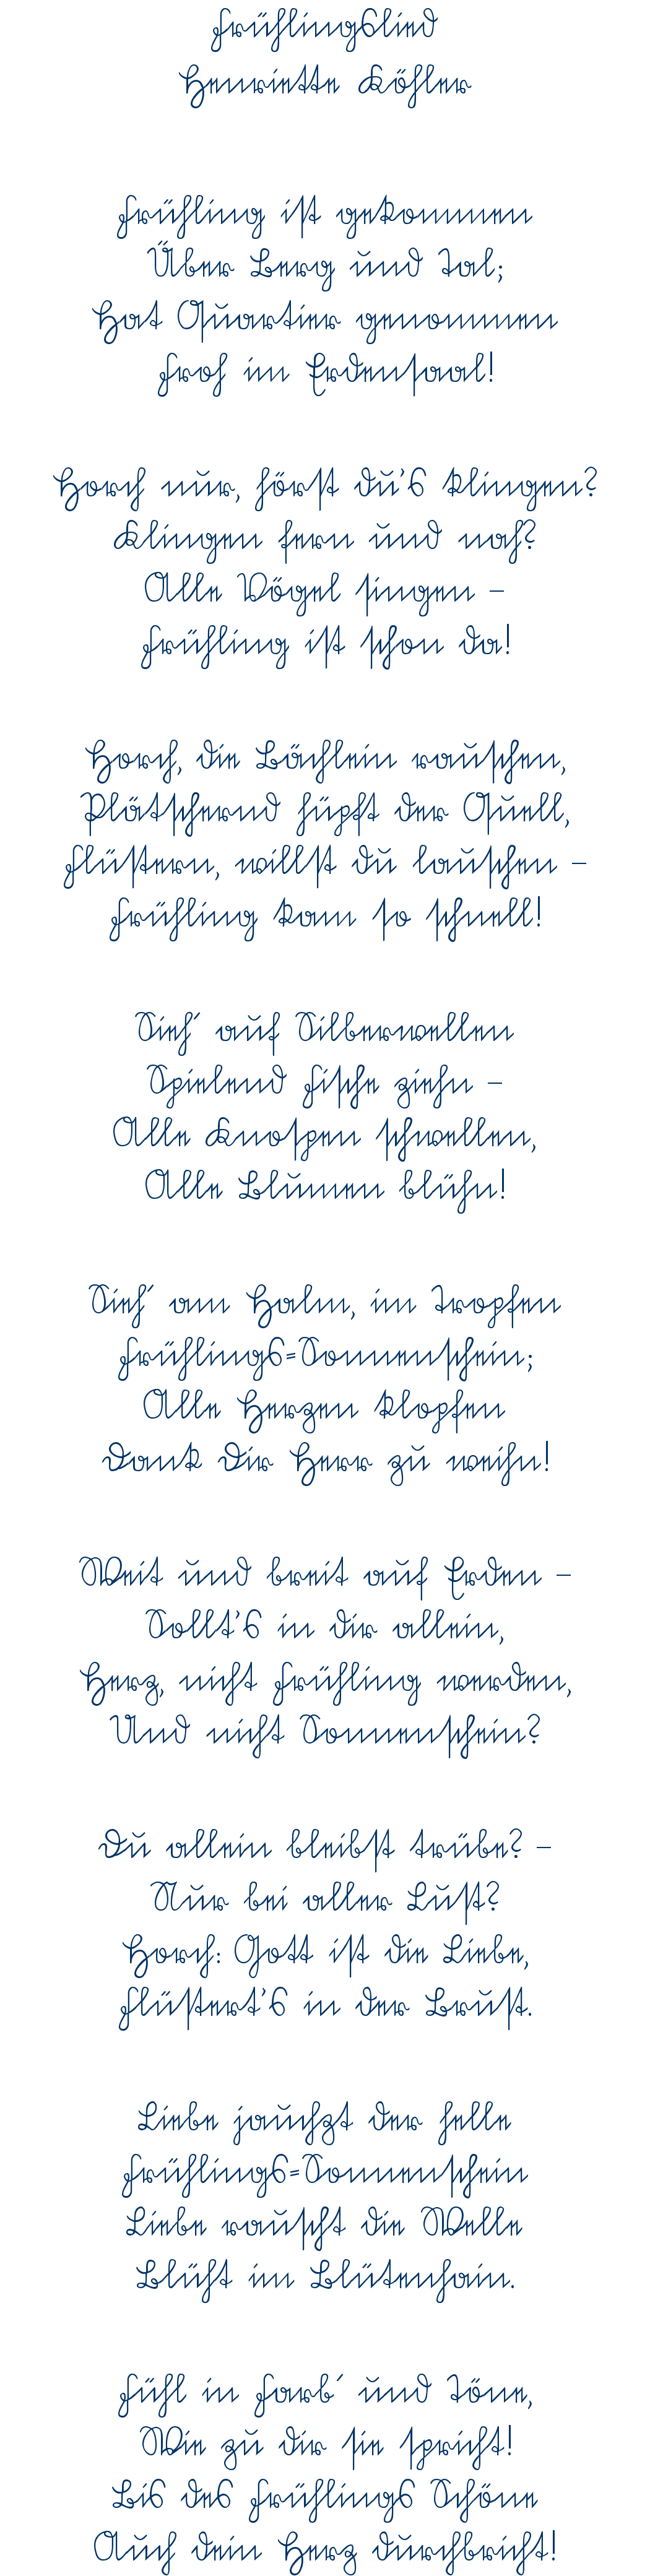 Frühlingslied
Henriette Köhler
Frühling ist gekommen
Über Berg und Tal;
Hat Quartier genommen
Froh im Erdensaal!
Horch nur, hörst du's klingen?
Klingen fern und nah?
Alle Vögel singen –
Frühling ist schon da!
Horch, die Bächlein rauschen,
Plätschernd hüpft der Quell,
Flüstern, willst du lauschen –
Frühling kam so schnell!
Sieh´ auf Silberwellen
Spielend Fische ziehn –
Alle Knospen schwellen,
Alle Blumen blühn!
Sieh´ am Halm, im Tropfen
Frühlings=Sonnenschein;
Alle Herzen klopfen
Dank Dir Herr zu weihn!
Weit und breit auf Erden –
Sollt's in dir allein,
Herz, nicht Frühling werden,
Und nicht Sonnenschein?
Du allein bleibst trübe? –
Nur bei aller Lust?
Horch: Gott ist die Liebe,
Flüstert's in der Brust.
Liebe jauchzt der helle
Frühlings=Sonnenschein
Liebe rauscht die Welle
Blüht im Blütenhain.
Fühl in Farb´ und Töne,
Wie zu dir sie spricht!
Bis des Frühlings Schöne
Auch dein Herz durchbricht!